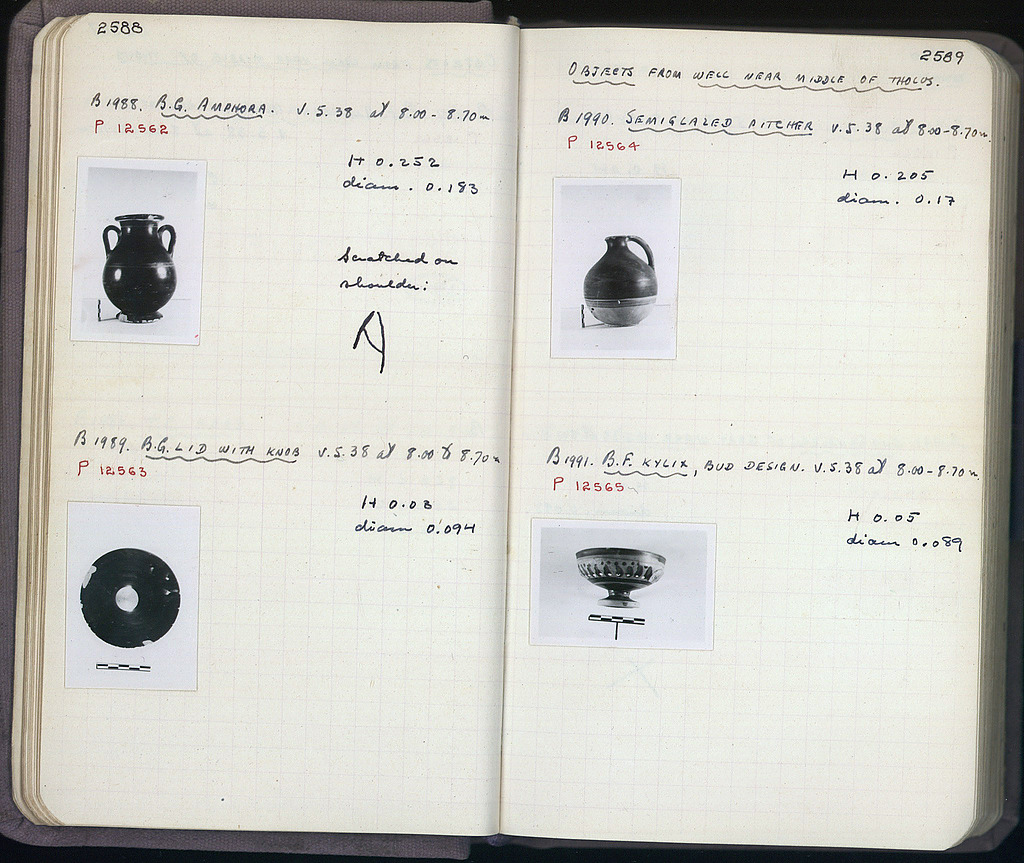 2588
B 1988. B.G. AMPHORA. V.S. 38 at 8.00 - 8.70 m
P 12562
H 0.252
diam. 0.183
Scratched on
shoulder:
B 1989. B.G. LID WITH KNOB V.S. 38 at 8.00 to 8.70 m
P 12563
H 0.03
diam 0.094
2589
OBJECTS FROM WELL NEAR MIDDLE OF THOLOS.
B 1990. SEMIGLAZED PITCHER V.S. 38 at 8.00-8.70 m.
P 12564
H 0.205
diam. 0.17
B 1991. B.F. KYLIX, BUD DESIGN. V.S. 38 at 8.00-8.70 m.
P 12565
H 0.05
diam 0.089